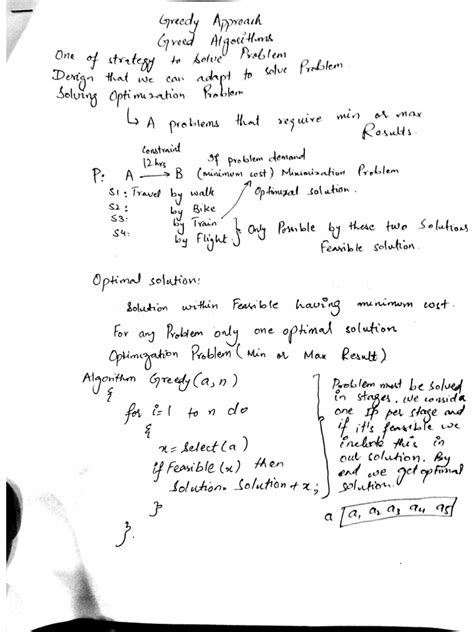 Greedy Approach
Greed Algorithms
One of strategy to solve Problem
Design that we can adapt to solve Problem.
Solving Optimization Problem
↳ A problems that require min or max
Results.
Constraint
12 hrs
If problem demand
P: A → B (minimum cost) Minimization Problem
S1: Travel by walk
Optimized solution.
S2: by Bike
S3: by Train
S4: by Flight } Only Possible by these two Solutions
Feasible solution.
Optimal solution:
Solution within Feasible having minimum cost.
For any Problem only one optimal solution
Optimization Problem (Min or Max Result)
Algorithm Greedy (a, n)
{
for i=1 to n do
{
x = Select (a)
if Feasible (x) then
Solution = Solution + x;
}
}.
Problem must be solved
in stages. we consida
one IP per stage and
if it's feasible we
include this in
out solution. By
end we get optimal
solution.
a [a1, a2 a3 a4 a5]